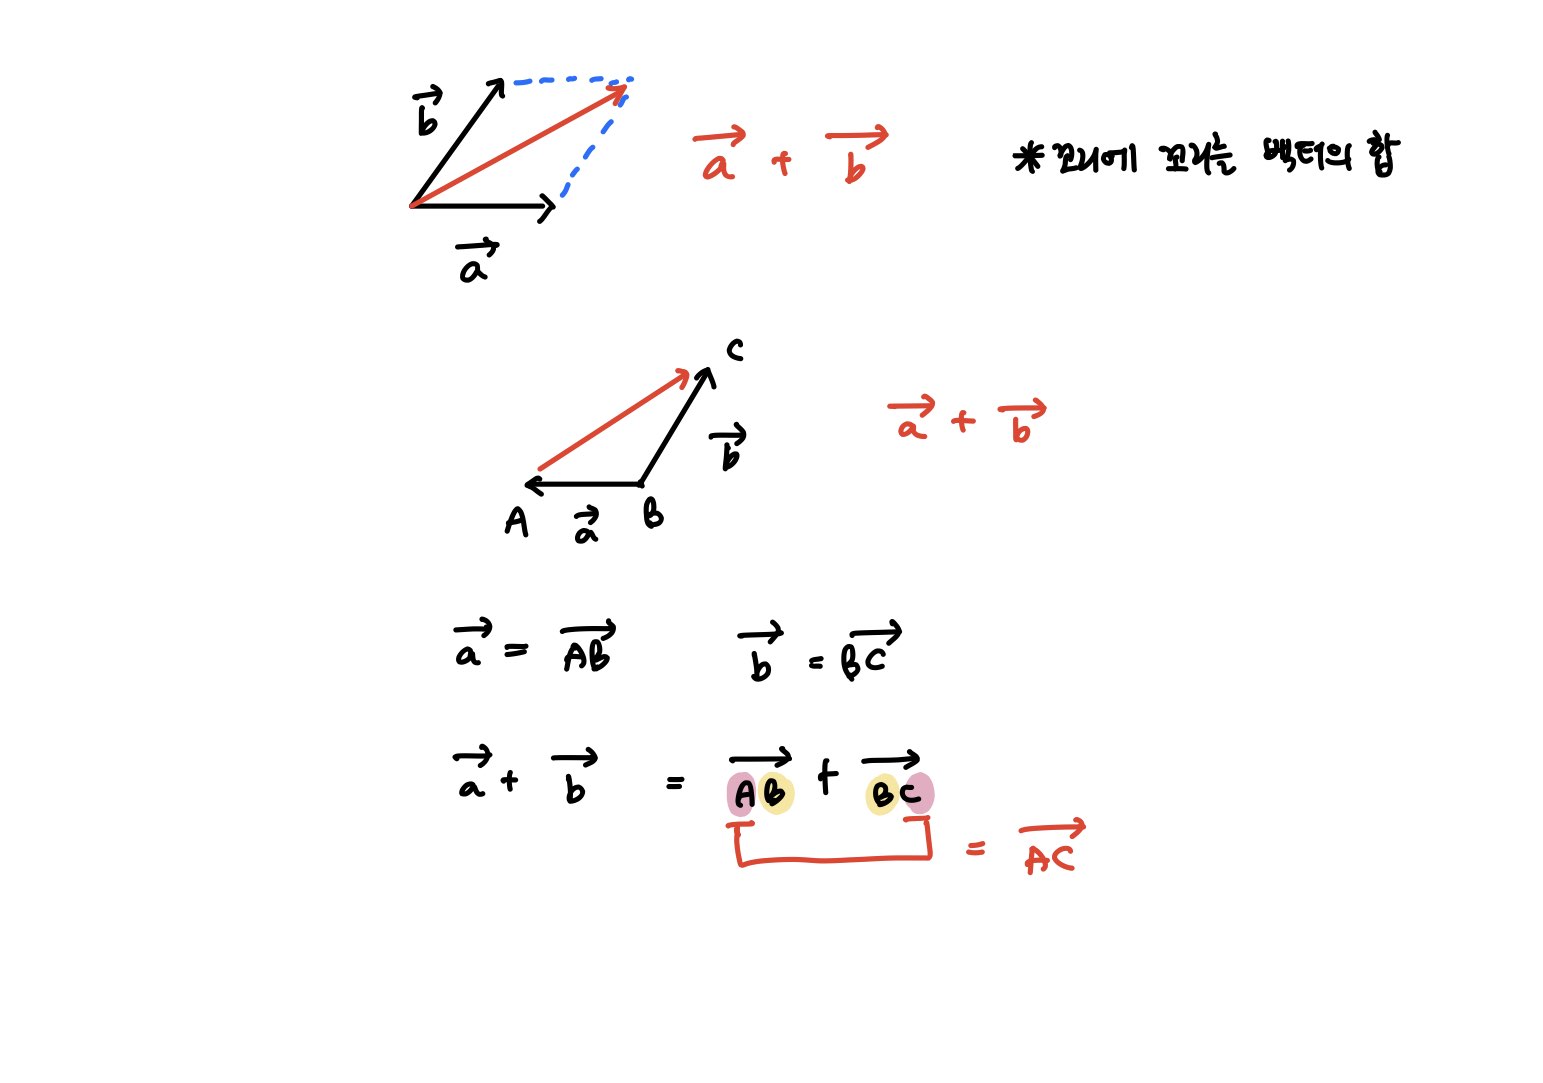 b⃗
a⃗
a⃗ + b⃗
*꼬리에 꼬리는 벡터의 합
C
b⃗
A a⃗ B
a⃗ + b⃗
a⃗ = A͞B⃗ b⃗ = B͞C⃗
a⃗ + b⃗ = A͞B⃗ + B͞C⃗
= A͞C⃗